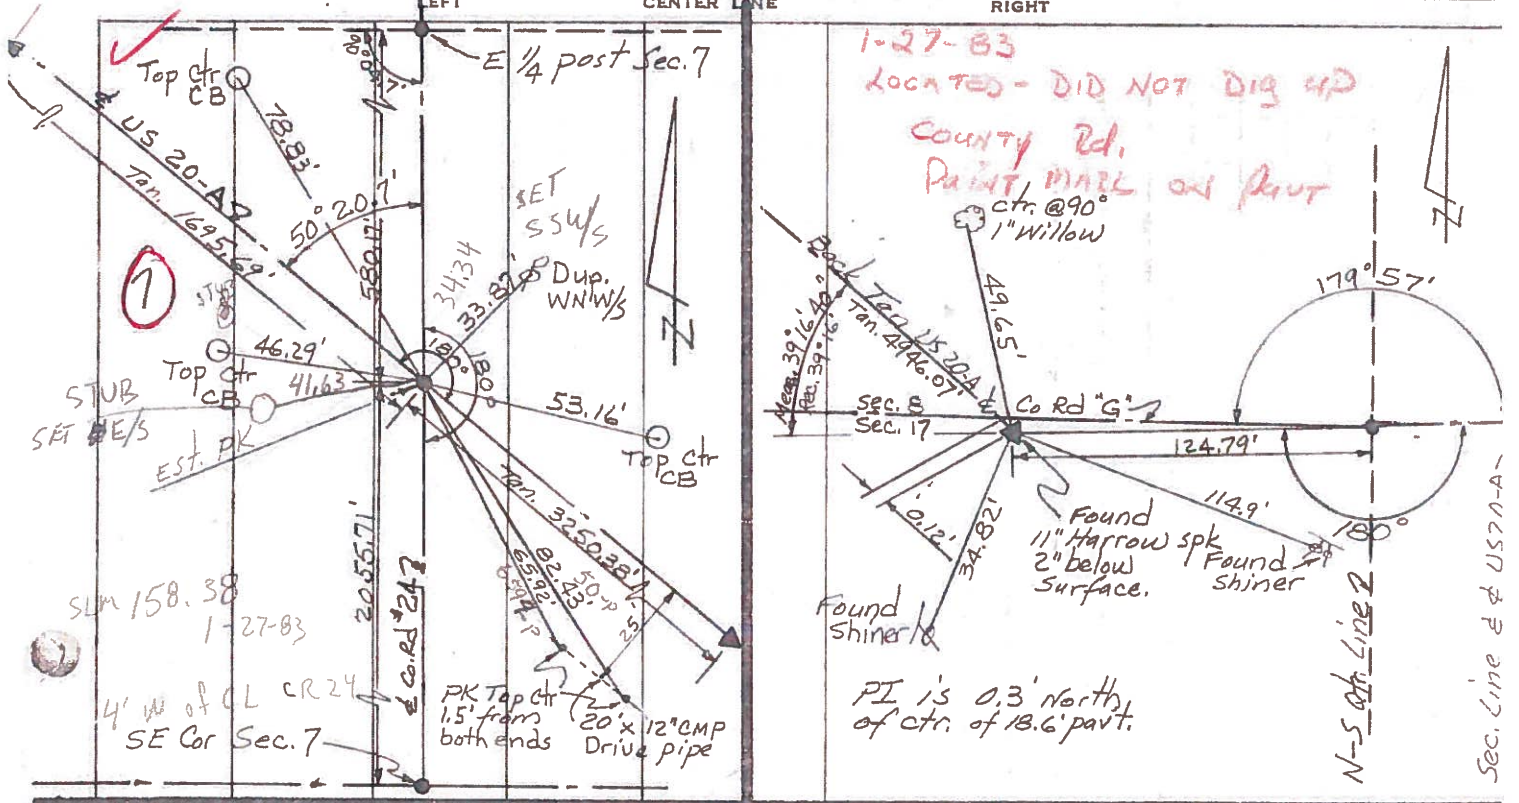 LEFT
CENTER LINE
RIGHT
E 1/4 post Sec. 7
Top Ctr
CB
78.83'
US 20-A
Tan. 1695.69'
50° 20.7'
580.17'
SET
SSW/S
34.34
33.87'
Dup.
WNW/S
Z
1
46.29'
Top Ctr
CB
41.63
180°
180°
STUB
SET E/S
Est. PK
53.16'
Top Ctr
CB
Tan. 3250.38'
82.43'
65.92'
25'
2055.71'
℄ Co. Rd #24
SLM 158.38
1-27-83
4' W of CL CR 24
SE Cor Sec. 7
PK Top Ctr
1.5' from
both ends
20' x 12" CMP
Drive pipe
1-27-83
LOCATED - DID NOT DIG UP
COUNTY Rd.
PAINT MARK ON PAVT
ctr. @ 90°
1" Willow
Z
Back Tan US 20-A
Tan. 4946.07'
Meas. 39° 16' 40"
Rec. 39° 16'
49.65'
179° 57'
Sec. 8
Sec. 17
Co Rd "G"
124.79'
114.9'
0.12'
34.82'
Found
11" Harrow spk
2" below
Surface.
Found
Shiner
180°
Found
Shiner
PI is 0.3' North
of ctr. of 18.6' pavt.
N-S 1/4 Line
Sec. Line & ℄ US20-A